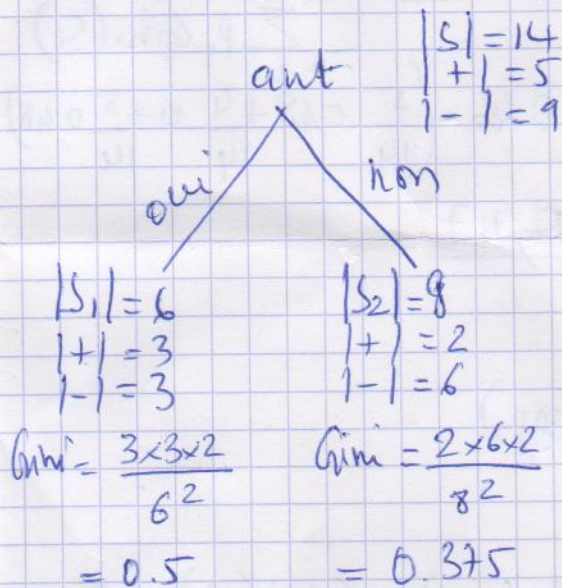 |S| = 14
|+| = 5
|-| = 9
ant
oui
non
|S₁| = 6
|+| = 3
|-| = 3
Gini = 3×3×2 / 6²
= 0.5
|S₂| = 8
|+| = 2
|-| = 6
Gini = 2×6×2 / 8²
= 0.375